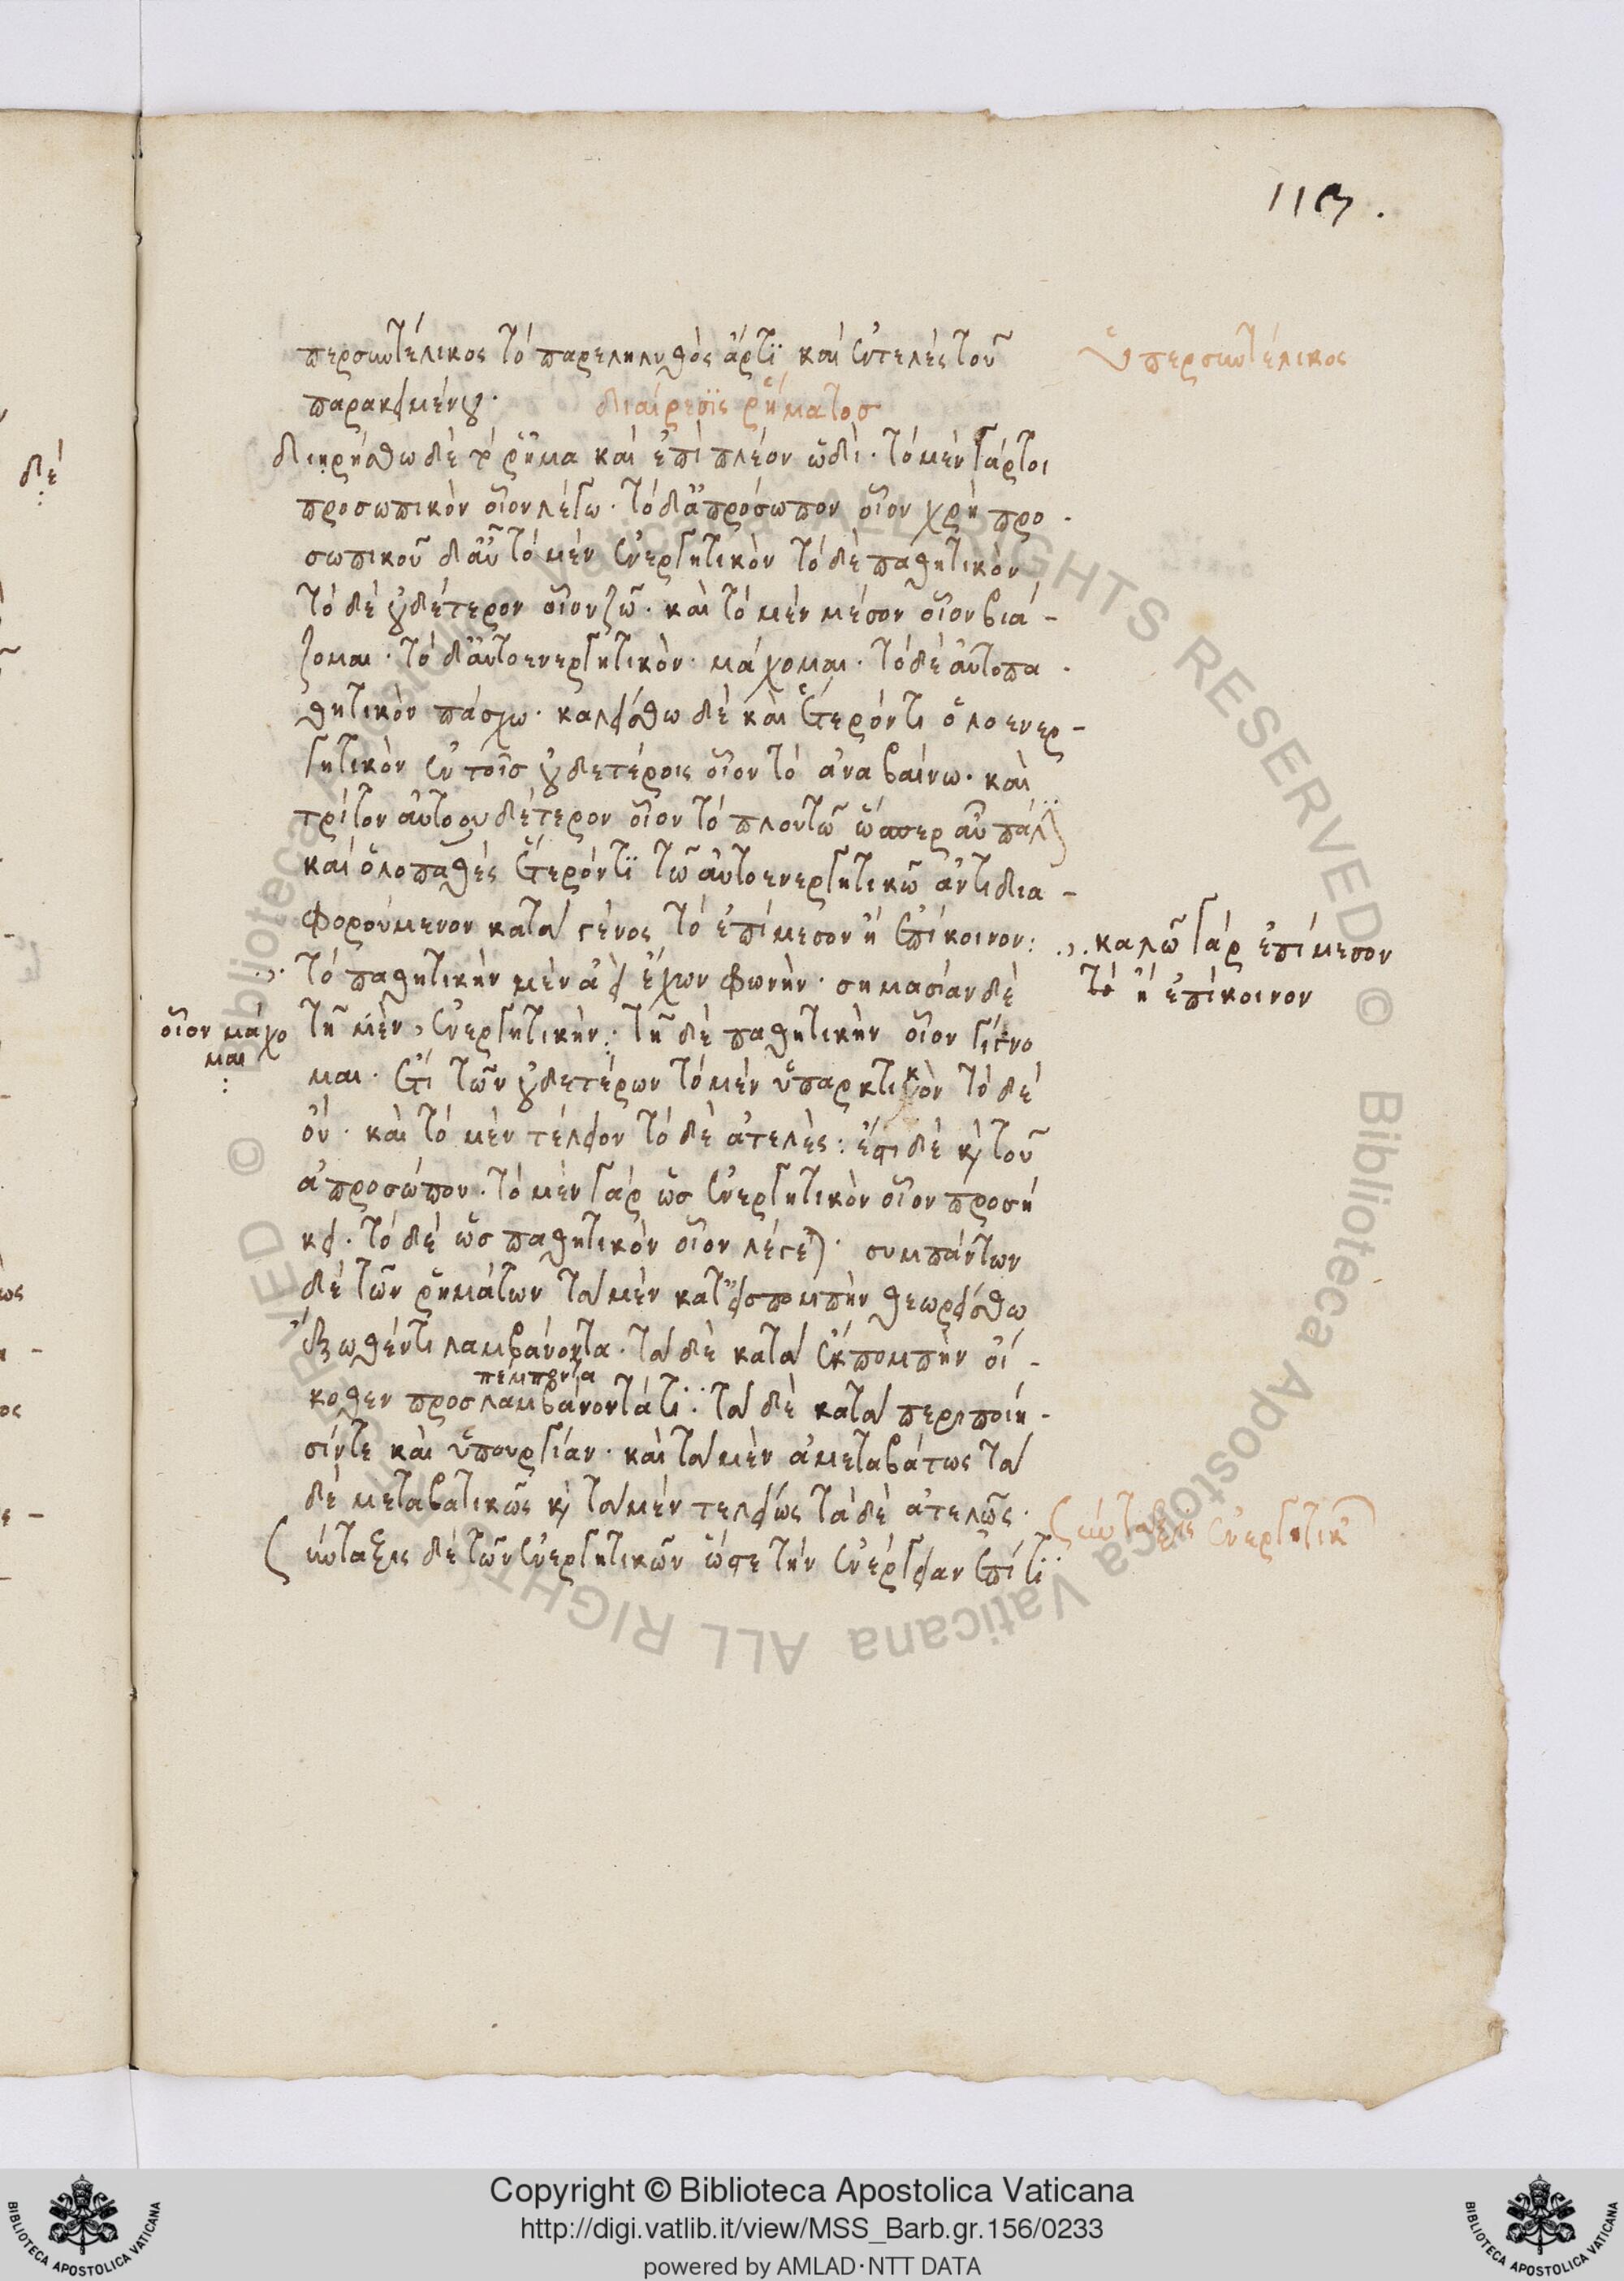 113.
περσυντέλικος τὸ παρεληλυθὸς ἄρτϊ καὶ ἐντελὲς τοῦ
ὑπερσυντέλικος
παρακειμένου·
διαίρεσϊς ῥήματοσ
διῃρήσθω δὲ τὸ ῥῆμα καὶ ἐπὶ πλέον ὧδὶ· τὸ μὲν γάρτοι
προσωπικὸν οἷον λέγω· τὸ δ' ἀπρόσωπον οἷον χρὴ προ-
σωπικοῦ δ' αὖ τὸ μὲν ἐνεργητικὸν τὸ δὲ παθητικὸν
τὸ δὲ οὐδέτερον οἷον ζῶ· καὶ τὸ μὲν μέσον οἷον βιά-
ζομαι· τὸ δ' αὐτοενεργητικὸν· μάχομαι· τὸ δὲ αὐτοπα-
θητικὸν πάσχω· καλείσθω δὲ καὶ ἕτερόν τι ὁλοενερ-
γητικὸν ἐν τοῖσ οὐδετέροις οἷον τὸ ἀναβαίνω· καὶ
τρίτον αὐτοουδέτερον οἷον τὸ πλουτῶ ὥσπερ αὖ πάλϊν
καὶ ὁλοπαθὲς ἕτερόν τϊ τῶ αὐτοενεργητικῶ ἀντιδια-
φορούμενον κατὰ γένος τὸ ἐπίμεσον ἢ ἐπίκοινον:
καλῶ γὰρ ἐπίμεσον
τὸ ἢ ἐπίκοινον
τὸ παθητικὴν μὲν ἀεὶ ἔχων φωνὴν· σημασίαν δὲ
τῆ μὲν, ἐνεργητικὴν: τῆ δὲ παθητικὴν οἷον γίγνο
οἷον μάχο
μαι
μαι· ἔτι τῶν οὐδετέρων τὸ μὲν ὑπαρκτικὸν τὸ δὲ
οὐ· καὶ τὸ μὲν τέλειον τὸ δὲ ἀτελὲς: ἔστι δὲ καὶ τοῦ
ἀπροσώπου· τὸ μὲν γὰρ ὡσ ἐνεργητικὸν οἷον προσή
κει· τὸ δὲ ὡσ παθητικὸν οἷον λέγεται· συμπάντων
δὲ τῶν ῥημάτων τὰ μὲν κατ' εἰσπομπὴν θεωρείσθω
ἔξωθέν τι λαμβάνοντα· τὰ δὲ κατὰ ἐκπομπὴν οἴ-
πέμποντα
κοθεν προσλαμβάνοντά τϊ: τὰ δὲ κατὰ περιποίη-
σίν τε καὶ ὑπουργίαν· καὶ τὰ μὲν ἀμεταβάτως τὰ
δὲ μεταβατικῶς καὶ τὰ μὲν τελείως τὰ δὲ ἀτελῶς·
σύνταξις δὲ τῶν ἐνεργητικῶν ὥστε τὴν ἐνέργειαν ἐπί τϊ
σύνταξις ἐνεργητικῶν
δὲ
Copyright © Biblioteca Apostolica Vaticana
http://digi.vatlib.it/view/MSS_Barb.gr.156/0233
powered by AMLAD·NTT DATA
BIBLIOTECA APOSTOLICA VATICANA
BIBLIOTECA APOSTOLICA VATICANA
© Biblioteca Apostolica Vaticana ALL RIGHTS RESERVED © Biblioteca Apostolica Vaticana ALL RIGHTS RESERVED